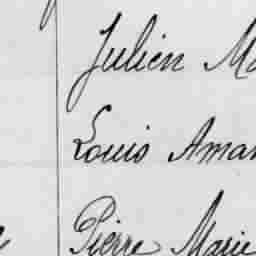 Julien Ma
Louis Aman
Pierre Marie